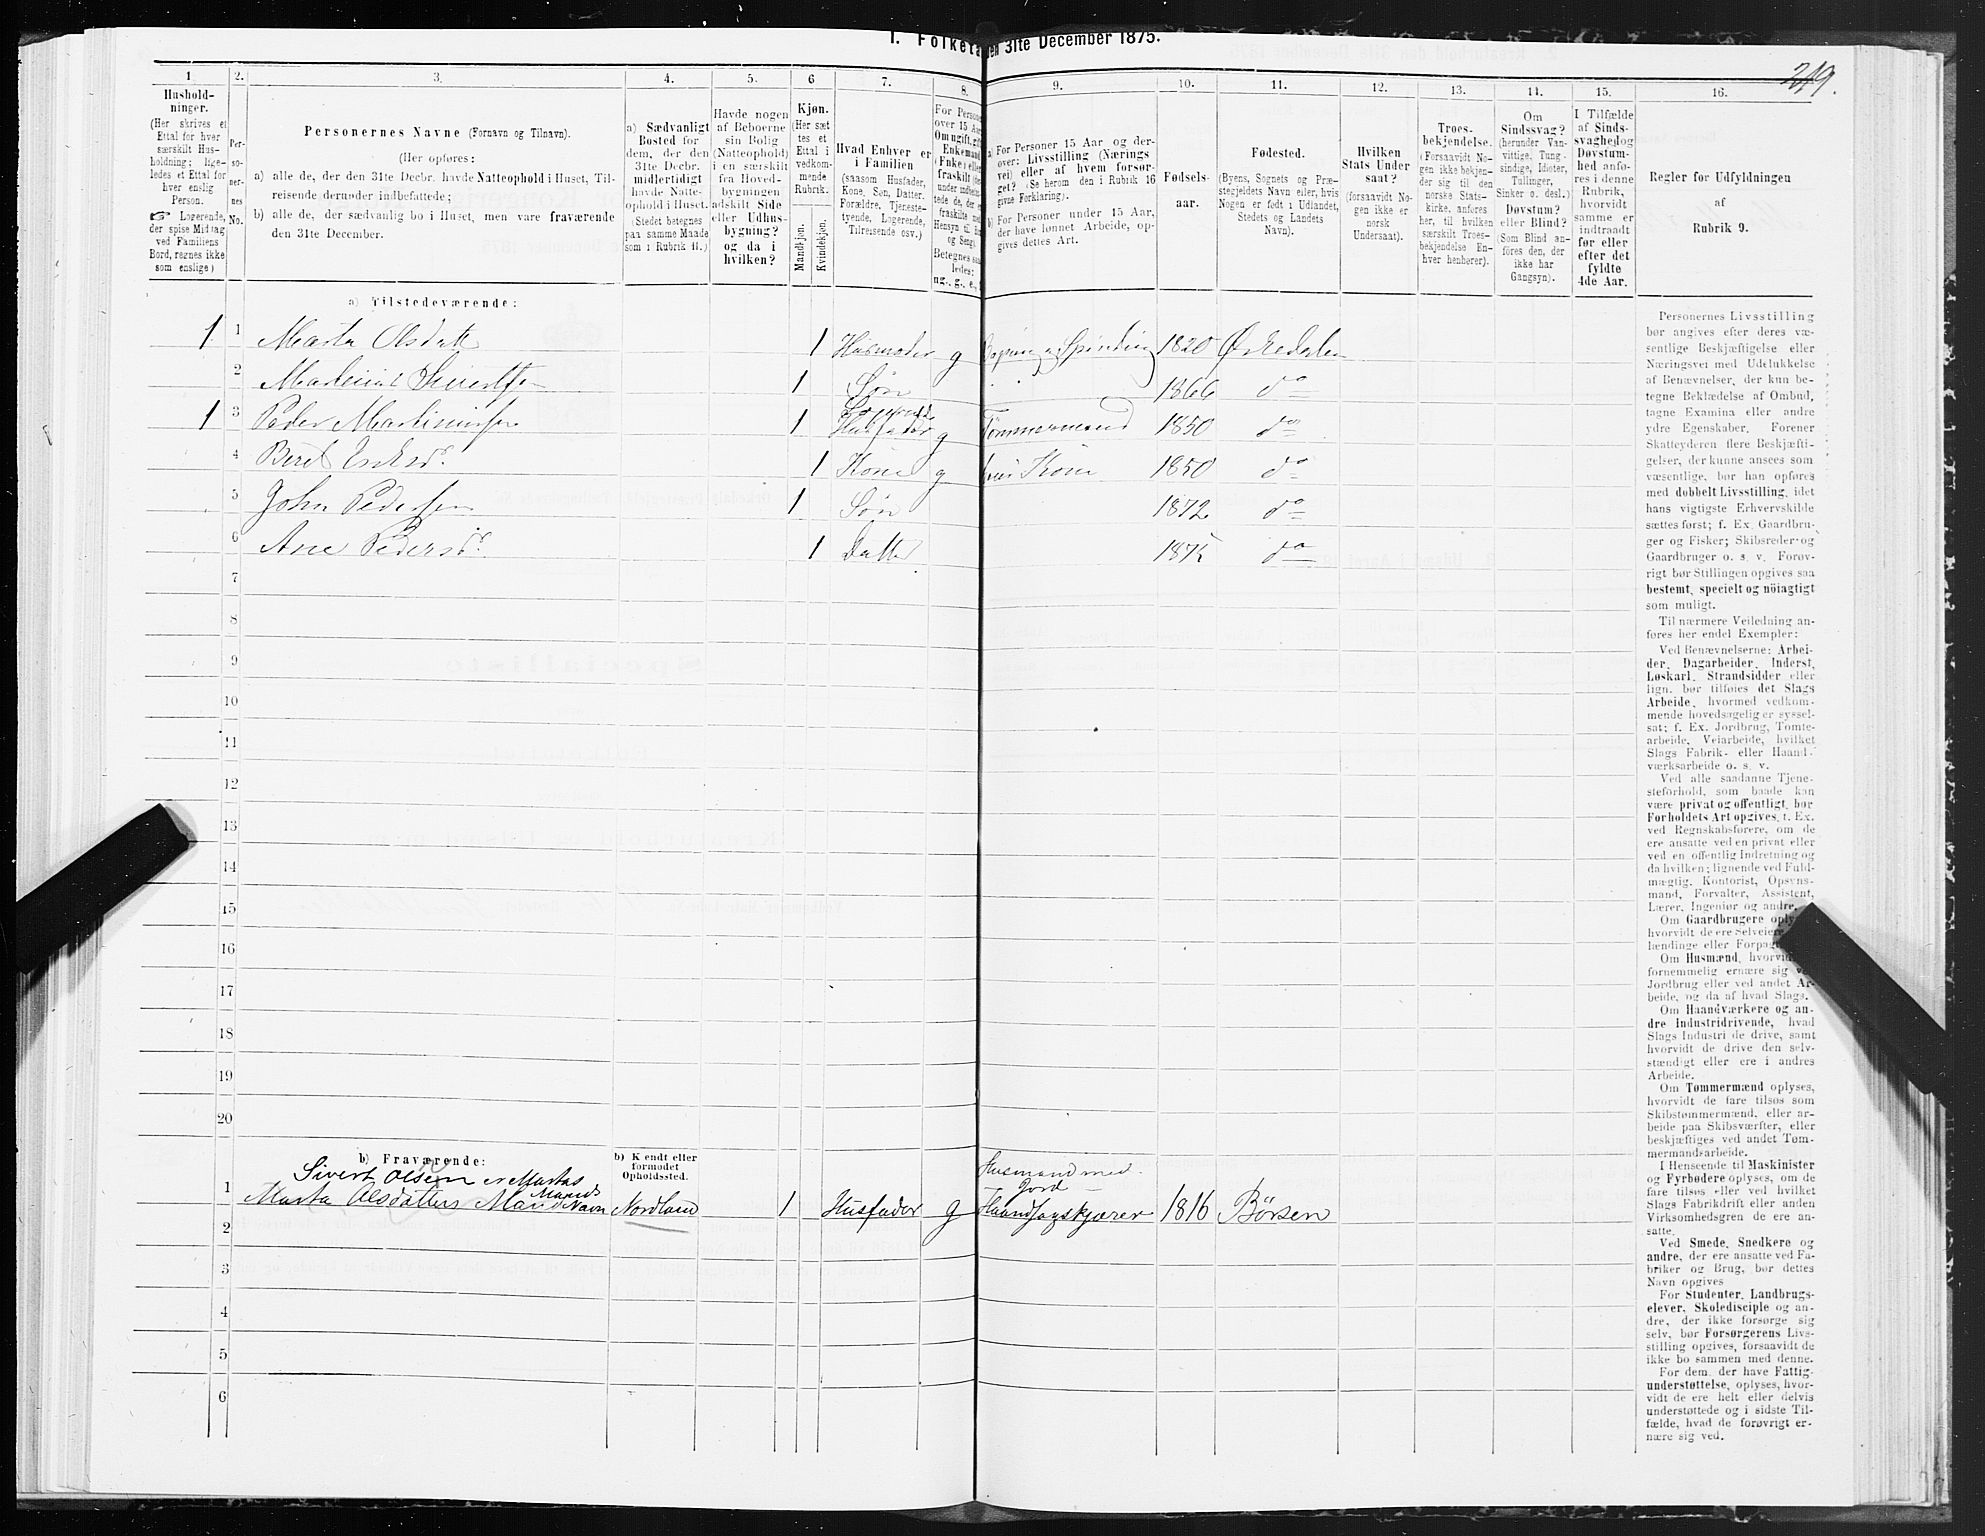 I. Folketa en 31te December 1875.
249.
1 2. 3. 4. 5. 6 7. 8. 9. 10. 11. 12. 13. 14. 15. 16.
Hushold-
ninger.
(Her skrives et
Ettal for hver
særskilt Hus-
holdning; lige-
ledes et Ettal for
hver enslig
Person.
☞ Logerende,
der spise Middag
ved Familiens
Bord, regnes ikke
som enslige)
Per-
so-
ner-
nes
No.
Personernes Navne (Fornavn og Tilnavn).
(Her opføres:
a) alle de, der den 31te Decbr. havde Natteophold i Huset, Til-
reisende derunder indbefattede;
b) alle de, der sædvanlig bo i Huset, men vare fraværende
den 31te December.
a) Sædvanligt
Bosted for
dem, der den
31te Decbr.
midlertidigt
havde Natte-
ophold i Huset.
(Stedet betegnes
paa samme Maade
som i Rubrik 11.)
Havde nogen
af Beboerne
sin Bolig
(Natteophold)
i en særskilt
fra Hoved-
bygningen
adskilt Side
eller Udhus-
bygning?
og da i
hvilken?
Kjøn.
(Her sæt
tes et
Ettal i
vedkom-
mende
Rubrik.
Mandkjøn.
Kvindekjøn.
Hvad Enhver er
i Familien
(saasom Husfader,
Kone, Søn, Datter,
Forældre, Tjeneste-
tyende, Logerende,
Tilreisende osv.)
For Persone
over 15 Aar
Om ugift, gift
Enkemand
(Enke) eller
fraskilt
under indbefat-
tede de, der er
fraskilte med
Hensyn til Bord
og Seng).
Betegnes saa-
ledes:
ug., g., e.,
a) For Personer 15 Aar og der-
over: Livsstilling (Nærings
vei) eller af hvem forsør-
get? (Se herom den i Rubrik 16
givne Forklaring).
b) For Personer under 15 Aar,
der have lønnet Arbeide, op-
gives dettes Art.
Fødsels-
aar.
Fødested.
(Byens, Sognets og Præ-
stegjeldets Navn eller, hvis
Nogen er født i Udlandet,
Stedets og Landets
Navn).
Hvilken
Stats Under
saat?
(forsaavidt No-
gen ikke er
norsk
Undersaat).
Troes-
bekjendelse.
(Forsaavidt No-
gen ikke bekjen-
der sig til den
norske Stats-
kirke, anføres
her, til hvilken
særskilt Troes-
bekjendelse En-
hver henhører).
Om
Sindssvag?
(herunder Van-
vittige, Tung-
sindige, Idioter,
Tullinger,
Sinker o. desl.)
Døvstum?
eller Blind?
(Som Blind an-
føres den, der
ikke har
Gangsyn).
I Tilfælde
af Sinds-
svaghed og
Døvstum-
hed anfø-
res i denne
Rubrik,
hvorvidt
samme er
indtraadt
før eller
efter det
fyldte
4de Aar.
Regler for Udfyldningen
af
Rubrik 9.
a) Tilstedeværende:
1 1 Marta Olsdatt 1 Husmoder g og Spinding 1820 Ørkedalen
2 Martinus Sivertsen 1 Søn 1866 do
1 3 Peder Martinussen 1 Logerende Husfader g Tømmermand 1850 do
4 Beret Eriksd. 1 Kone g Kone 1850 do
5 John Pedersen 1 Søn 1872 do
6 Ane Pedersd. 1 Datter 1875 do
7
8
9
10
11
12
13
14
15
16
17
18
19
20
b) Fraværende:
b) Kendt eller
formodet
Opholdssted.
Sivert Olsen er Martas
Mands
Husmand med
Jord
1 Marta Olsdatters Mand Navn Nordland 1 Husfader g Haandsagskjærer 1816 Børsen
2
3
4
5
6
Personernes Livsstilling
bør angives efter deres væ-
sentlige Beskjæftigelse eller
Næringsvei med Udelukkelse
af Benævnelser, der kun be-
tegne Beklædelse af Ombud,
tagne Examina eller andre
ydre Egenskaber. Forener
Skatteyderen flere Beskjæfti-
gelser, der kunne ansees som
væsentlige, bør han opføres
med dobbelt Livsstilling, idet
hans vigtigste Erhvervskilde
sættes først; f. Ex. Gaardbru-
ger og Fisker; Skibsreder og
Gaardbruger o. s. v. Forøv-
rigt bør Stillingen opgives saa
bestemt, specielt og nøiagtigt
som muligt.
Til nærmere Veiledning an-
føres her endel Exempler:
Ved Benævnelserne: Arbei-
der, Dagarbeider, Inderst,
Løskarl, Strandsidder eller
lign. bør tilføies det Slags
Arbeide, hvormed vedkom-
mende hovedsagelig er syssel-
sat; f. Ex. Jordbrug, Tomte-
arbeide, Veiarbeide, hvilket
Slags Fabrik- eller Haand-
værksarbeide o. s. v.
Ved alle saadanne Tjene-
steforhold, som baade kan
være privat og offentligt, bør
Forholdets Art opgives, t. Ex.
ved Regnskabsførere, om de
ere ansatte ved en privat eller
ved en offentlig Indretning og
da hvilken; lignende ved Fuld-
mægtig, Kontorist, Opsyns-
mand, Forvalter, Assistent,
Lærer, Ingeniør og andre.
Om Gaardbrugere oply
hvorvidt de ere Selveiere
lændinge eller Forpag
Om Husmænd, hvorvid
fornemmelig ernære sig v
Jordbrug eller ved andet Ar-
beide, og da af hvad Slags.
Om Haandværkere og an-
dre Industridrivende, hvad
Slags Industri de drive, samt
hvorvidt de drive den selv-
stændigt eller ere i andres
Arbeide.
Om Tømmermænd oplyses,
hvorvidt de fare tilsøs som
Skibstømmermænd, eller ar-
beide paa Skibsværfter, eller
beskjæftiges ved andet Tøm-
mermandsarbeide.
I Henseende til Maskinister
og Fyrbødere oplyses, om de
fare tilsøs eller ved hvilket
Slags Fabrikdrift eller anden
Virksomhedsgren de ere an-
satte.
Ved Smede, Snedkere og
andre, der ere ansatte ved Fa-
briker og Brug, bør dettes
Navn opgives
For Studenter, Landbrugs-
elever, Skoledisciple og an-
dre, der ikke forsørge sig
selv, bør Forsørgerens Livs-
stilling opgives, forsaavidt de
ikke bo sammen med denne.
For dem, der have Fattig-
understøttelse, oplyses, hvor-
vidt de ere helt eller delvis
understøttede og i sidste Til-
fælde, hvad de forøvrigt er-
nære sig ved.